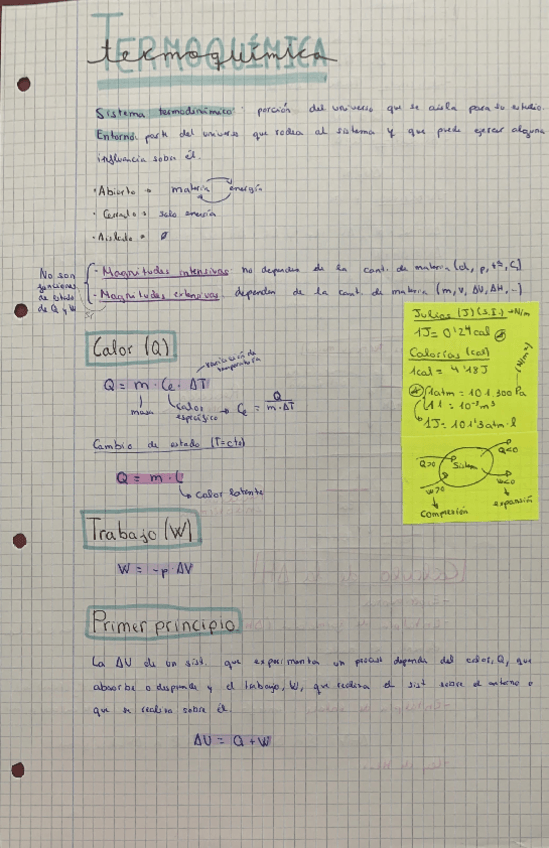 TERMOQUÍMICA
termoquímica
Sistema termodinámico: porción del universo que se aísla para su estudio.
Entorno: parte del universo que rodea al sistema y que puede ejercer alguna
influencia sobre él.
· Abierto → materia energía
· Cerrado → solo energía
· Aislado → ∅
No son
funciones
de estado
ni Q y W
- Magnitudes intensivas: no dependen de la cant. de materia (d, p, tª, Ce)
- Magnitudes extensivas: dependen de la cant. de materia (m, V, ΔU, ΔH, ...)
Calor (Q)
variación de
temperatura
Q = m · Ce · ΔT
masa
calor
específico → Ce = Q / m · ΔT
Cambio de estado (T=cte)
Q = m · L
calor latente
Trabajo (W)
W = -p · ΔV
Primer principio
La ΔU de un sist. que experimenta un proceso depende del calor, Q, que
absorbe o desprende y el trabajo, W, que realiza el sist sobre el entorno o
que se realiza sobre él.
ΔU = Q + W
Julios (J) (S.I.) → N/m
1J = 0'24 cal
Calorías (cal)
1cal = 4'18J
(N/m²)
1atm = 101.300 Pa
1 l = 10⁻³ m³
1J = 101'3 atm · l
Q>0
Sistema
Q<0
W>0
W<0
compresión
expansión